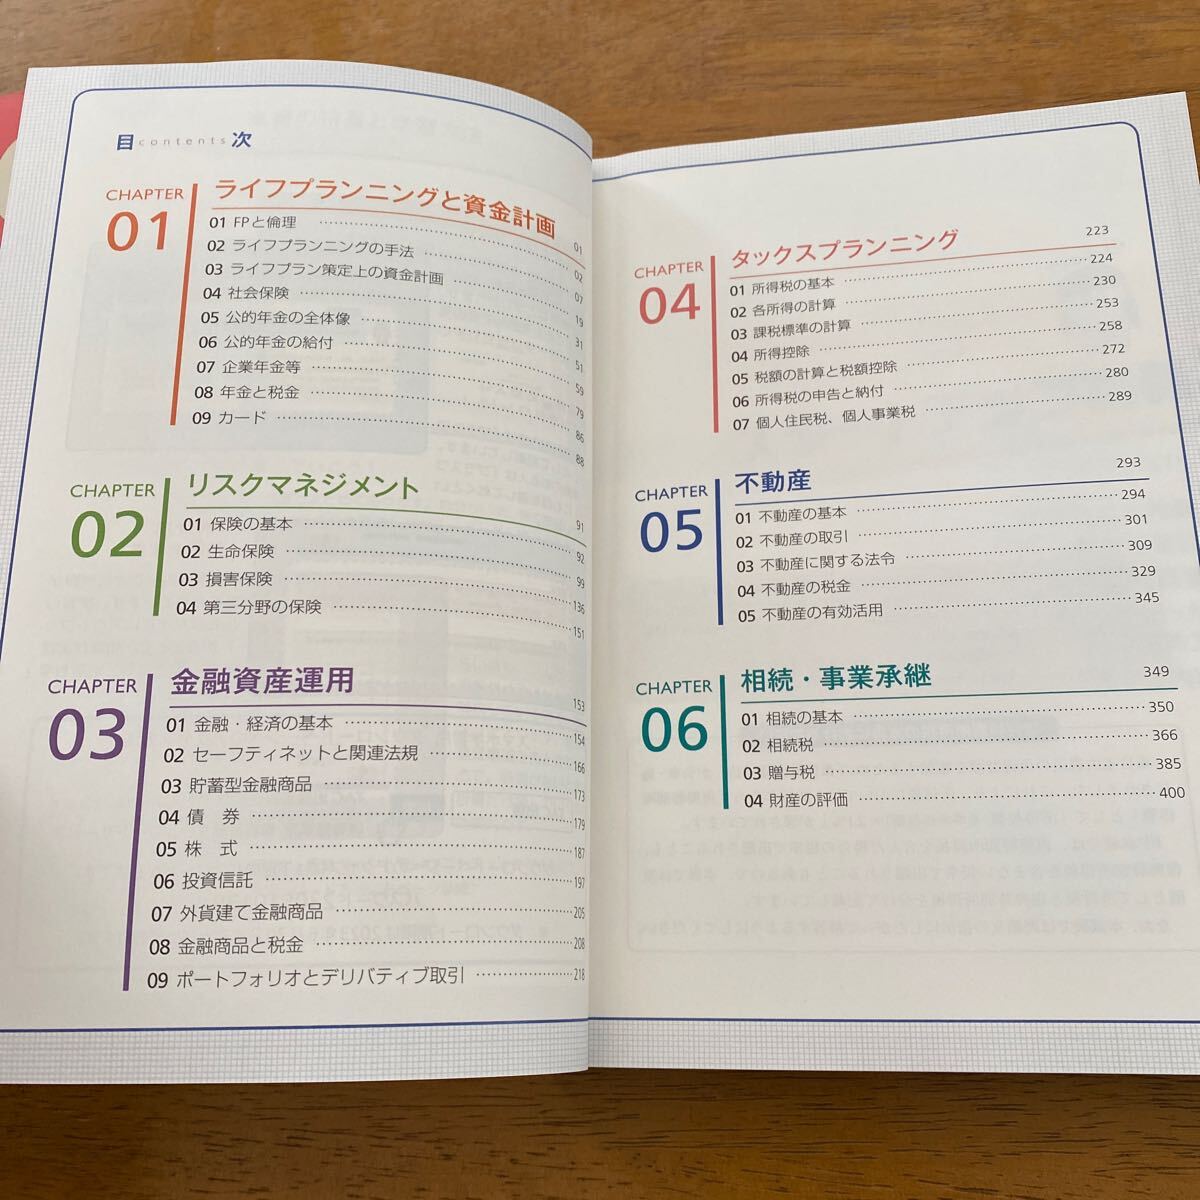 目 contents 次
CHAPTER 01 ライフプランニングと資金計画 01
01 FPと倫理 02
02 ライフプランニングの手法 07
03 ライフプラン策定上の資金計画 19
04 社会保険 31
05 公的年金の全体像 51
06 公的年金の給付 59
07 企業年金等 79
08 年金と税金 86
09 カード 88
CHAPTER 02 リスクマネジメント 91
01 保険の基本 92
02 生命保険 99
03 損害保険 136
04 第三分野の保険 151
CHAPTER 03 金融資産運用 153
01 金融・経済の基本 154
02 セーフティネットと関連法規 166
03 貯蓄型金融商品 173
04 債　券 179
05 株　式 187
06 投資信託 197
07 外貨建て金融商品 205
08 金融商品と税金 208
09 ポートフォリオとデリバティブ取引 218
CHAPTER 04 タックスプランニング 223
01 所得税の基本 224
02 各所得の計算 230
03 課税標準の計算 253
04 所得控除 258
05 税額の計算と税額控除 272
06 所得税の申告と納付 280
07 個人住民税、個人事業税 289
CHAPTER 05 不動産 293
01 不動産の基本 294
02 不動産の取引 301
03 不動産に関する法令 309
04 不動産の税金 329
05 不動産の有効活用 345
CHAPTER 06 相続・事業承継 349
01 相続の基本 350
02 相続税 366
03 贈与税 385
04 財産の評価 400